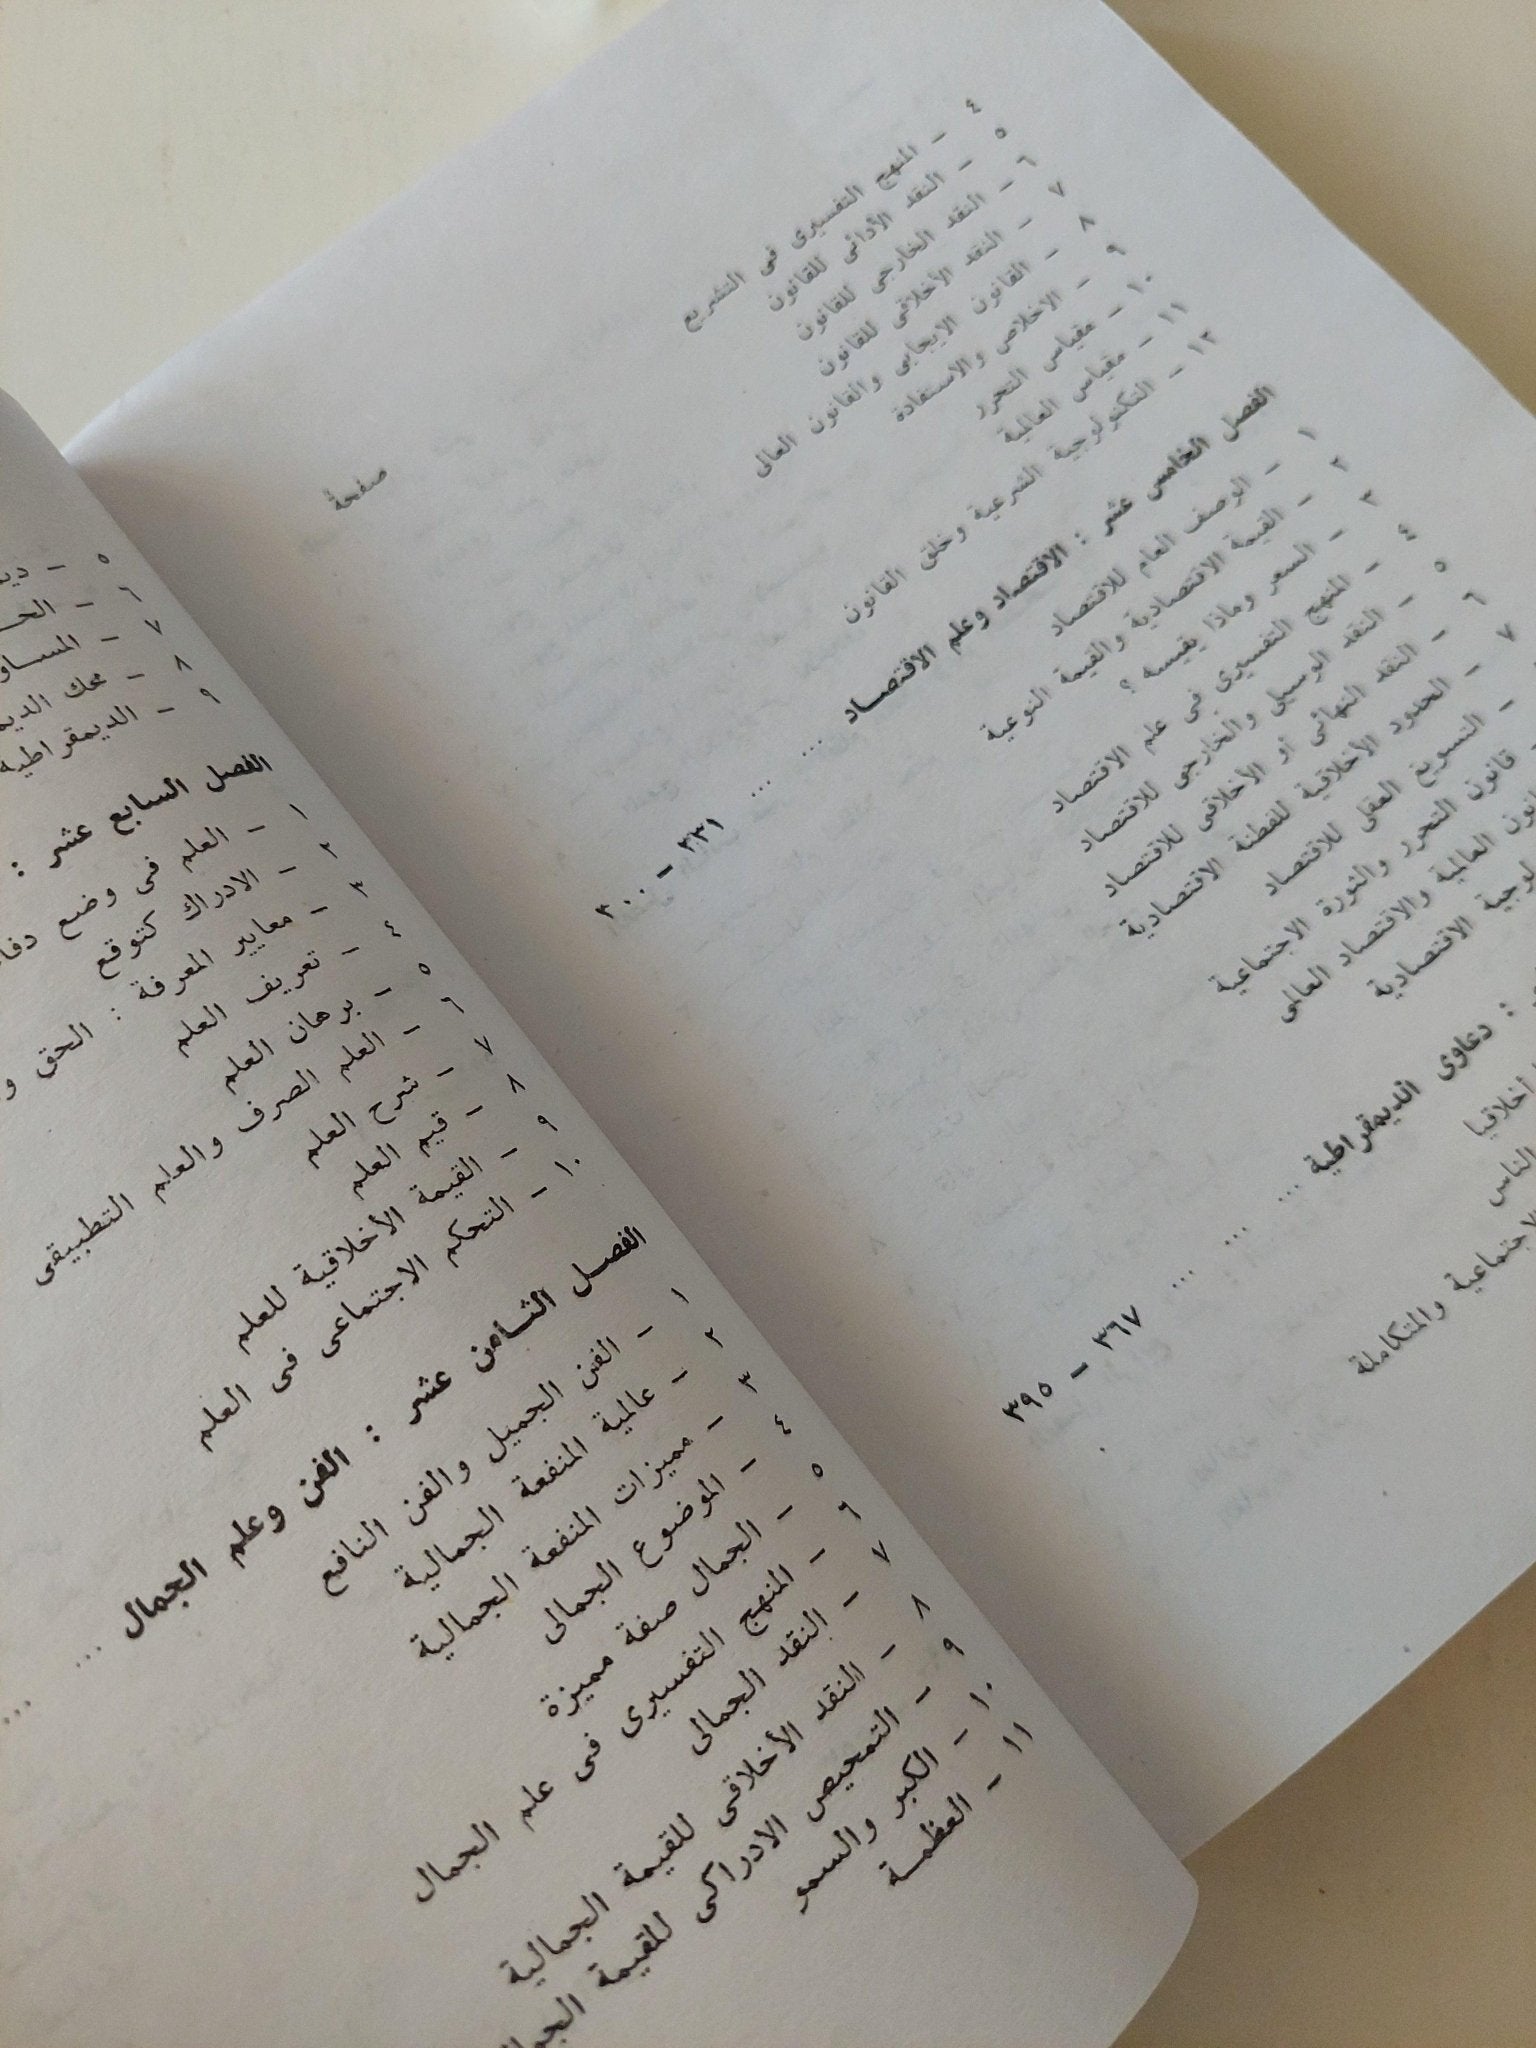 صفحة
٤ - المنهج التفسيرى فى التشريع
٥ - النقد الأداتى للقانون
٦ - النقد الخارجى للقانون
٧ - النقد الأخلاقى للقانون
٨ - القانون الايجابى والقانون العالى
٩ - الاخلاص والاستفادة
١٠ - مقياس التحرر
١١ - مقياس العالمية
١٢ - التكنولوجية الشرعية وخلق القانون
الفصل الخامس عشر : الاقتصاد وعلم الاقتصاد ... ... ٣٣١ -
١ - الوصف العام للاقتصاد
٢ - القيمة الاقتصادية والقيمة النوعية
٣ - السعر وماذا يقيسه ؟
٤ - المنهج التفسيرى فى علم الاقتصاد
٥ - النقد الوسيلى والخارجى للاقتصاد
٦ - النقد النهائى أو الأخلاقى للاقتصاد
٧ - الحدود الأخلاقية للفطنة الاقتصادية
- التسويغ العقلى للاقتصاد
- قانون التحرر والثورة الاجتماعية
العالمية والاقتصاد العالمى
الاقتصادية
: دعاوى الديمقراطية ... ... ... ٣٦٧ - ٣٩٥
أخلاقيا
الناس
الاجتماعية والمتكاملة
٥ -
٦ -
٧ -
٨ - محك
٩ - الديمقراطية
الفصل السابع عشر :
١ - العلم فى وضع
٢ - الادراك كتوقع
٣ - معايير المعرفة : الحق
٤ - تعريف العلم
٥ - برهان العلم
٦ - العلم الصرف والعلم التطبيقى
٧ - شرح العلم
٨ - قيم العلم
٩ - القيمة الأخلاقية للعلم
١٠ - التحكم الاجتماعى فى العلم
الفصل الثامن عشر : الفن وعلم الجمال ... ...
١ - الفن الجميل والفن النافع
٢ - عالمية المنفعة الجمالية
٣ - مميزات المنفعة الجمالية
٤ - الموضوع الجمالى
٥ - الجمال صفة مميزة
٦ - المنهج التفسيرى فى علم الجمال
٧ - النقد الجمالى
٨ - النقد الأخلاقى للقيمة الجمالية
٩ - التمحيص الادراكى للقيمة
١٠ - الكبر والسمو
١١ - العظمة